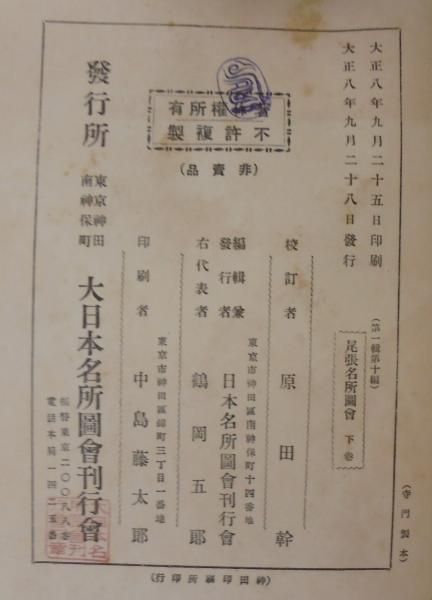 大正八年九月二十五日印刷
大正八年九月二十八日發行
(第一輯第十編)
尾張名所圖會 下卷
(寺門製本)
著作權所有
不許複製
(非賣品)
校訂者 原田幹
東京市神田區南神保町十四番地
編輯兼發行者 日本名所圖會刊行會
右代表者 鶴岡五郎
東京市神田區錦町三丁目一番地
印刷者 中島藤太郎
(神田印刷所印行)
發行所
東京神田
南神保町
大日本名所圖會刊行會
振替東京二〇〇八八番
電話本局一四二五番